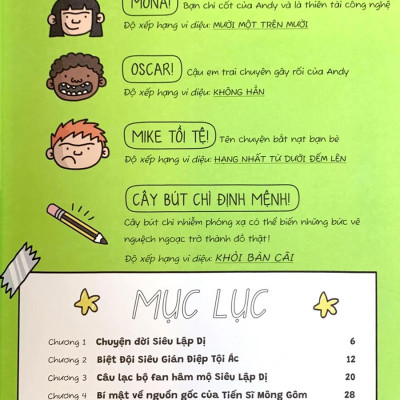 MONA! Bạn chí cốt của Andy và là thiên tài công nghệ
Độ xếp hạng vi diệu: MƯỜI MỘT TRÊN MƯỜI
OSCAR! Cậu em trai chuyên gây rối của Andy
Độ xếp hạng vi diệu: KHÔNG HẲN
MIKE TỒI TỆ! Tên chuyên bắt nạt bạn bè
Độ xếp hạng vi diệu: HẠNG NHẤT TỪ DƯỚI ĐẾM LÊN
CÂY BÚT CHÌ ĐỊNH MỆNH!
Cây bút chì nhiễm phóng xạ có thể biến những bức vẽ
nguệch ngoạc trở thành đồ thật!
Độ xếp hạng vi diệu: KHỎI BÀN CÃI
MỤC LỤC
Chương 1 Chuyện đời Siêu Lập Dị 6
Chương 2 Biệt Đội Siêu Gián Điệp Tội Ác 12
Chương 3 Câu lạc bộ fan hâm mộ Siêu Lập Dị 20
Chương 4 Bí mật về nguồn gốc của Tiến Sĩ Mông Gôm 28